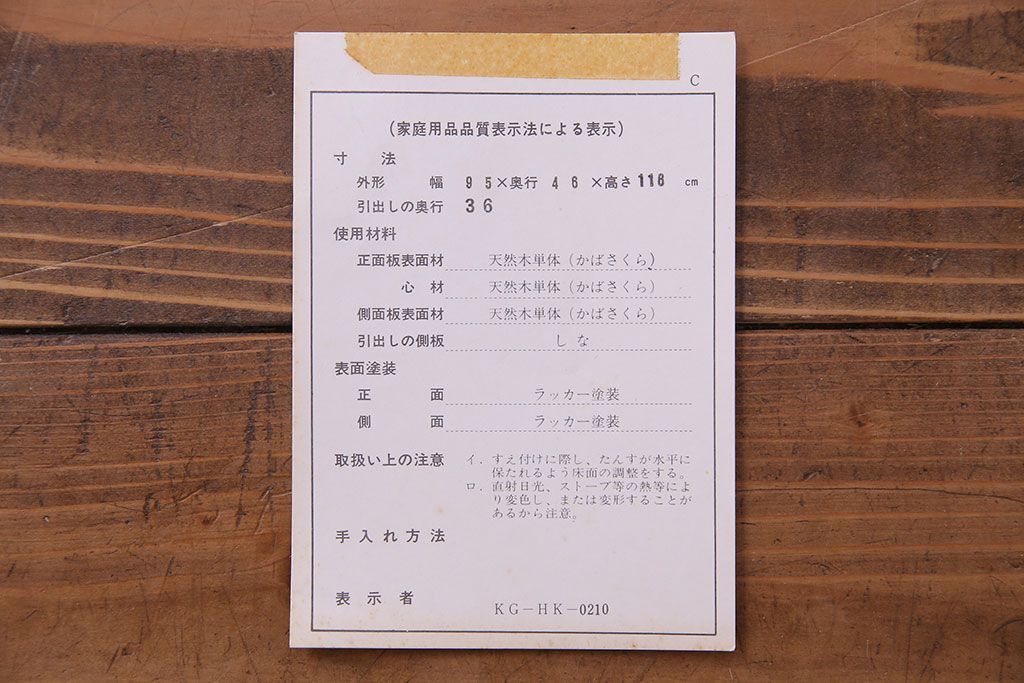 C
(家庭用品品質表示法による表示)
寸 法
外形 幅 95×奥行 46×高さ118 cm
引出しの奥行 36
使用材料
正面板表面材 天然木単体(かばさくら)
心材 天然木単体(かばさくら)
側面板表面材 天然木単体(かばさくら)
引出しの側板 しな
表面塗装
正面 ラッカー塗装
側面 ラッカー塗装
取扱い上の注意 イ.すえ付けに際し、たんすが水平に
保たれるよう床面の調整をする。
ロ.直射日光、ストーブ等の熱等によ
り変色し、または変形することが
あるから注意。
手入れ方法
表示者 KG-HK-0210